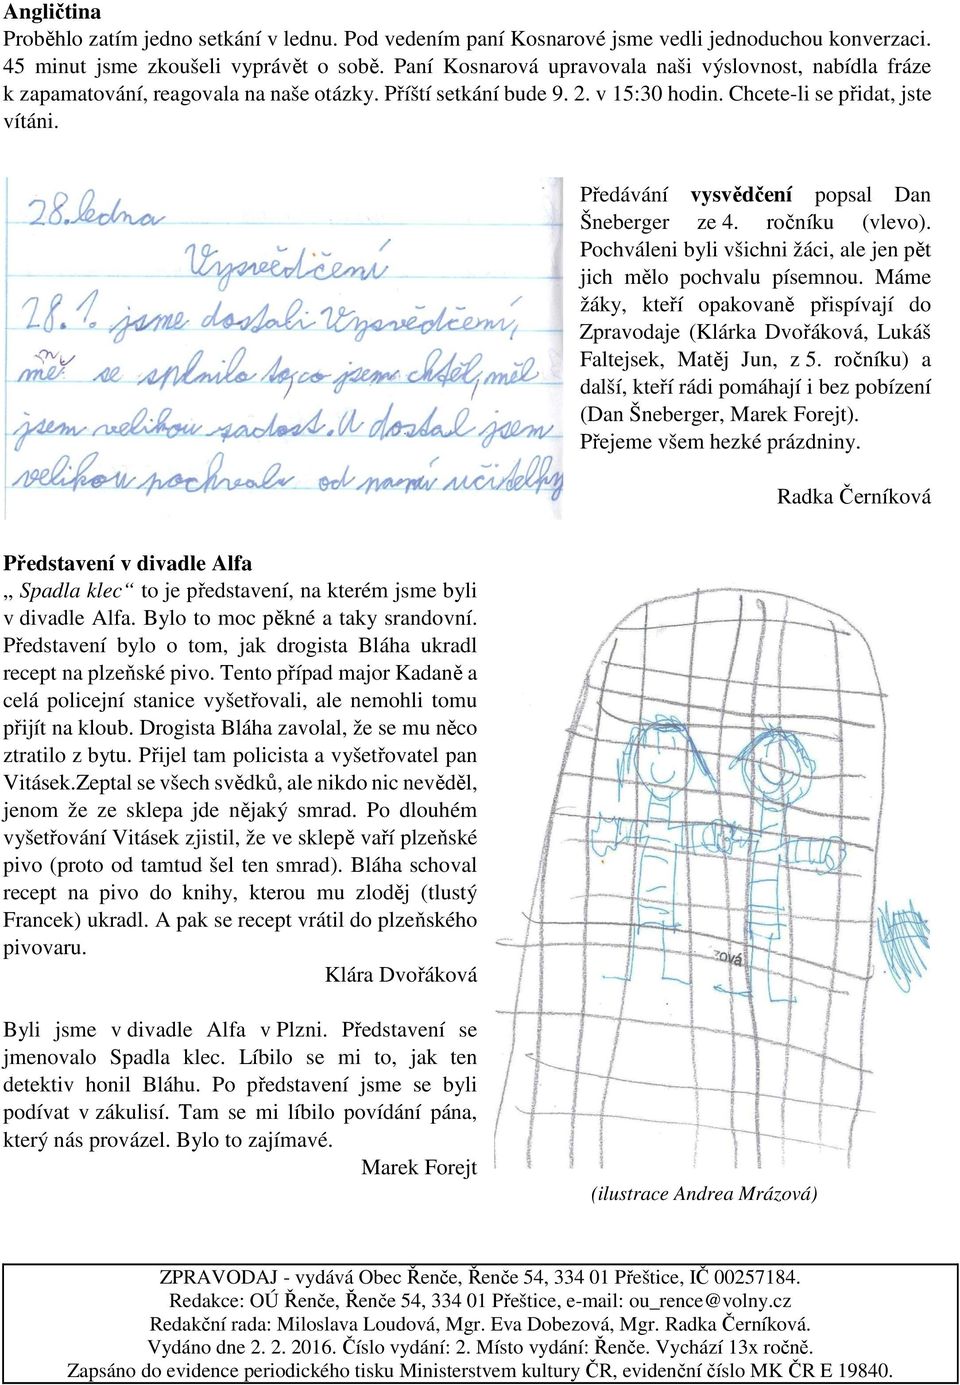 Angličtina
Proběhlo zatím jedno setkání v lednu. Pod vedením paní Kosnarové jsme vedli jednoduchou konverzaci.
45 minut jsme zkoušeli vyprávět o sobě. Paní Kosnarová upravovala naši výslovnost, nabídla fráze
k zapamatování, reagovala na naše otázky. Příští setkání bude 9. 2. v 15:30 hodin. Chcete-li se přidat, jste
vítáni.
28. ledna
Vysvědčení
28. 1. jsme dostali Vysvědčení,
mě se splnilo to, co jsem chtěl, měl
jsem velikou radost. A dostal jsem
velikou pochvalu od naší učitelky
Předávání vysvědčení popsal Dan
Šneberger ze 4. ročníku (vlevo).
Pochváleni byli všichni žáci, ale jen pět
jich mělo pochvalu písemnou. Máme
žáky, kteří opakovaně přispívají do
Zpravodaje (Klárka Dvořáková, Lukáš
Faltejsek, Matěj Jun, z 5. ročníku) a
další, kteří rádi pomáhají i bez pobízení
(Dan Šneberger, Marek Forejt).
Přejeme všem hezké prázdniny.
Radka Černíková
Představení v divadle Alfa
„ Spadla klec“ to je představení, na kterém jsme byli
v divadle Alfa. Bylo to moc pěkné a taky srandovní.
Představení bylo o tom, jak drogista Bláha ukradl
recept na plzeňské pivo. Tento případ major Kadaně a
celá policejní stanice vyšetřovali, ale nemohli tomu
přijít na kloub. Drogista Bláha zavolal, že se mu něco
ztratilo z bytu. Přijel tam policista a vyšetřovatel pan
Vitásek.Zeptal se všech svědků, ale nikdo nic nevěděl,
jenom že ze sklepa jde nějaký smrad. Po dlouhém
vyšetřování Vitásek zjistil, že ve sklepě vaří plzeňské
pivo (proto od tamtud šel ten smrad). Bláha schoval
recept na pivo do knihy, kterou mu zloděj (tlustý
Francek) ukradl. A pak se recept vrátil do plzeňského
pivovaru.
Klára Dvořáková
Byli jsme v divadle Alfa v Plzni. Představení se
jmenovalo Spadla klec. Líbilo se mi to, jak ten
detektiv honil Bláhu. Po představení jsme se byli
podívat v zákulisí. Tam se mi líbilo povídání pána,
který nás provázel. Bylo to zajímavé.
Marek Forejt
zová
(ilustrace Andrea Mrázová)
ZPRAVODAJ - vydává Obec Řenče, Řenče 54, 334 01 Přeštice, IČ 00257184.
Redakce: OÚ Řenče, Řenče 54, 334 01 Přeštice, e-mail: ou_rence@volny.cz
Redakční rada: Miloslava Loudová, Mgr. Eva Dobezová, Mgr. Radka Černíková.
Vydáno dne 2. 2. 2016. Číslo vydání: 2. Místo vydání: Řenče. Vychází 13x ročně.
Zapsáno do evidence periodického tisku Ministerstvem kultury ČR, evidenční číslo MK ČR E 19840.